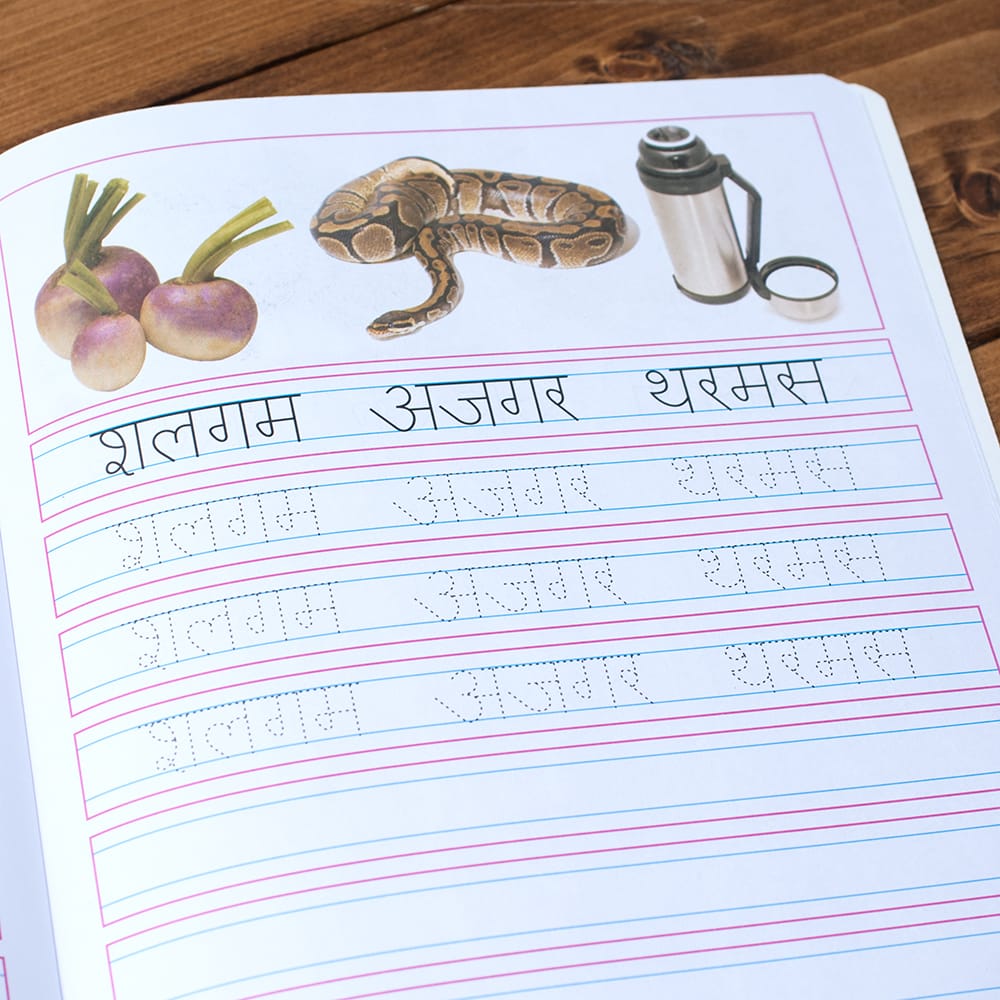 शलगम अजगर थरमस
शलगम अजगर थरमस
शलगम अजगर थरमस
शलगम अजगर थरमस